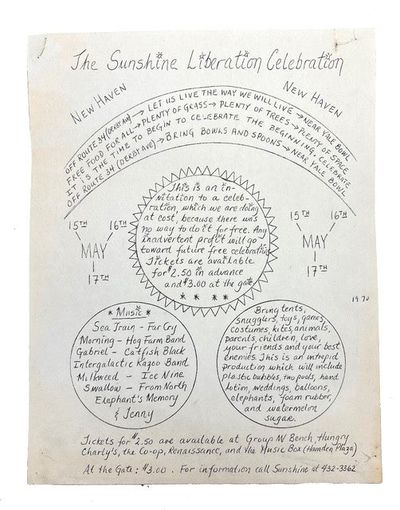 The Sunshine Liberation Celebration
New Haven
New Haven
OFF ROUTE 34 (DERBY AVE) → LET US LIVE THE WAY WE WILL LIVE → NEAR YALE BOWL
FREE FOOD FOR ALL → PLENTY OF GRASS → PLENTY OF TREES → PLENTY OF SPACE
IT IS THE TIME TO BEGIN TO CELEBRATE THE BEGINNING, CELEBRATE
OFF ROUTE 34 (DERBY AVE) → BRING BOWLS AND SPOONS → NEAR YALE BOWL
This is an in-
vitation to a celeb-
ration, which we are doing
at cost, because there was
no way to do it for free. Any
inadvertent profit will go
toward future free celebrations
Tickets are available
for $2.50 in advance
and $3.00 at the gate.
* * * *
15TH
16TH
MAY
17TH
15TH
16TH
MAY
17TH
1970
* Music *
Sea Train - Far Cry
Morning - Hog Farm Band
Gabriel - Catfish Black
Intergalactic Kazoo Band
Milkweed - Ice Nine
Swallow - From North
Elephant's Memory
& Jenny
Bring tents,
snugglers, toys, games,
costumes, kites, animals,
parents, children, love,
your friends and your best
enemies. This is an intrepid
production which will include
plastic bubbles, two pools, hand
lotion, weddings, balloons,
elephants, foam rubber,
and watermelon
sugar.
Tickets for $2.50 are available at Group W Bench, Hungry
Charly's, the Co-op, Renaissance, and the Music Box (Hamden Plaza)
At the Gate: $3.00. For information call Sunshine at 432-3362